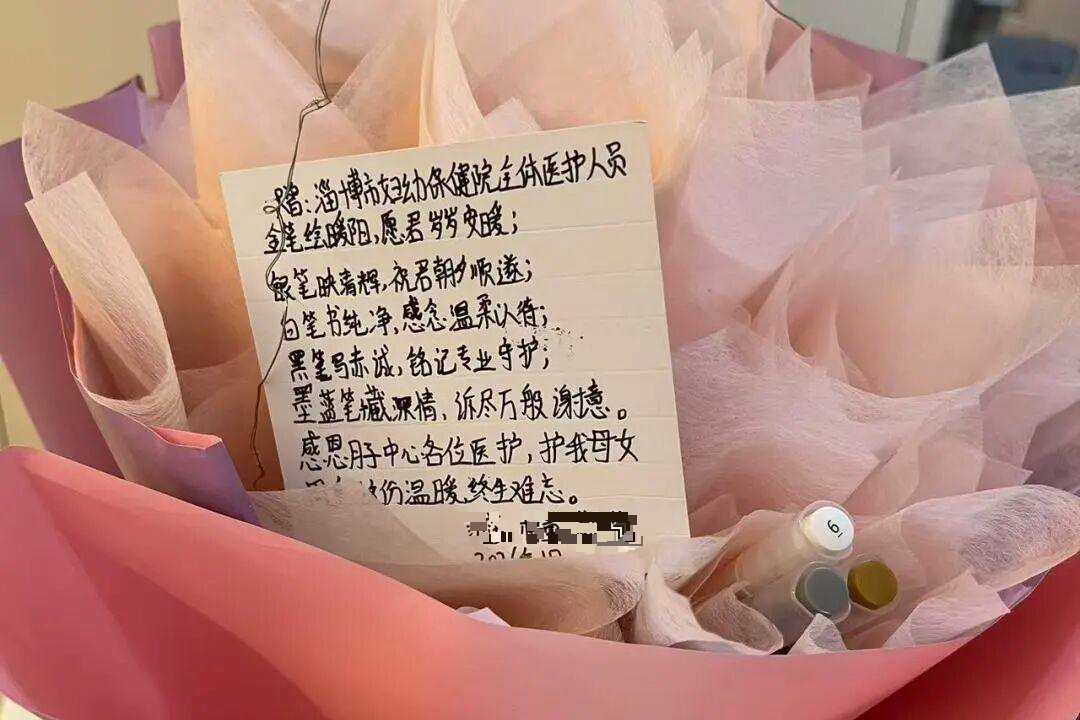 赠:淄博市妇幼保健院全体医护人员
金笔绘暖阳,愿君岁岁安暖;
银笔映清辉,祝君朝夕顺遂;
白笔书纯净,感念温柔以待;
黑笔写赤诚,铭记专业守护;
墨蓝笔藏深情,诉尽万般谢意。
感恩月子中心各位医护,护我母女
份温暖,终生难忘。
19